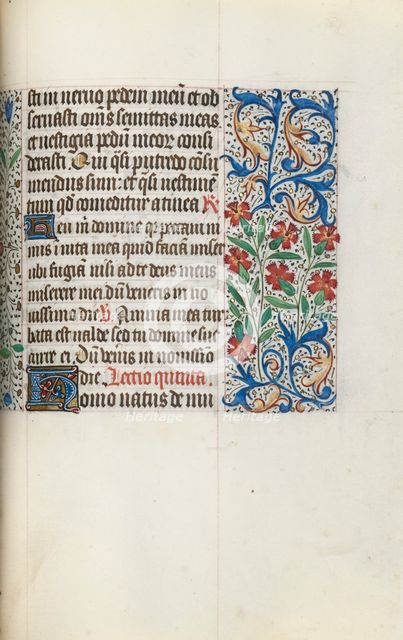 sti in neruo pedem meū et ob
seruasti om̄s semittas meas
et uestigia pedū meorꝝ consi
derasti. Qui q̄si putredo cōsu
mendus sum: et q̄si uestimē
tum qd̄ comeditur a tinea. ℟
Heu m̄ domine qr peccaui ni
mis ī uita mea quid faciam miser
ubi fugiā nisi ad te deus meus
miserere mei dū veneris in no
uissimo die. ℣. Anima mea tur
bata est ualde sed tu domine suc
curre ei. Dū venis in nouissimo
die. Lectio quinta.
Homo natus de mu
Heritage
Heritage